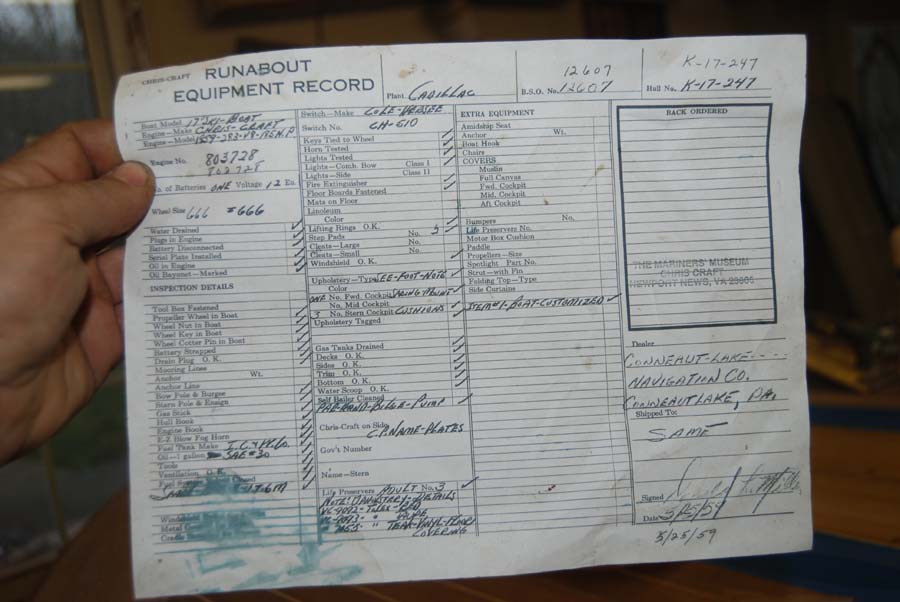 CHRIS-CRAFT RUNABOUT
EQUIPMENT RECORD
Plant CADILLAC
12607
B.S.O. No. 12607
K-17-247
Hull No. K-17-247
Boat Model 17' SKI-BOAT
Engine-Make CHRIS-CRAFT
Engine-Model
Engine No. 803728
803728
No. of Batteries ONE Voltage 12 Ea.
Wheel Size 666 = 666
Water Drained
Plugs in Engine
Battery Disconnected
Serial Plate Installed
Oil in Engine
Oil Bayonet-Marked
INSPECTION DETAILS
Tool Box Fastened
Propeller Wheel in Boat
Wheel Nut in Boat
Wheel Key in Boat
Wheel Cotter Pin in Boat
Battery Strapped
Drain Plug O. K.
Mooring Lines
Anchor Wt.
Anchor Line
Bow Pole & Burgee
Stern Pole & Ensign
Gas Stick
Hull Book
Engine Book
E-Z Blow Fog Horn
Fuel Tank Make
Oil-1 gallon SAE #30
Tools
Ventilation O. K.
Switch-Make COLE-HERSEE
Switch No.
Keys Tied to Wheel
Horn Tested
Lights Tested
Lights-Comb. Bow Class I
Lights-Side Class II
Fire Extinguisher
Floor Boards Fastened
Mats on Floor
Linoleum
Color
Lifting Rings O. K.
Step Pads No. 3
Cleats-Large No.
Cleats-Small No.
Windshield O. K.
Upholstery-Type SEE-FOOT-NOTE
Color
ONE No. Fwd. Cockpit
No. Mid Cockpit
3 No. Stern Cockpit CUSHIONS
Upholstery Tagged
Gas Tanks Drained
Decks O. K.
Sides O. K.
Trim O. K.
Bottom O. K.
Water Scoop O. K.
Self Bailer Cleaned
PAR-HAND-BILGE-PUMP
Chris-Craft on Side
C.P. NAME-PLATES
Gov't Number
Name-Stern
Life Preservers ADULT No. 3
NOTE: UPHOLSTERY-DETAILS
COVERING
EXTRA EQUIPMENT
Amidship Seat
Anchor Wt.
Boat Hook
Chairs
COVERS
Muslin
Full Canvas
Fwd. Cockpit
Mid. Cockpit
Aft Cockpit
Bumpers No.
Life Preservers No.
Motor Box Cushion
Paddle
Propellers-Size
Spotlight Part No.
Strut-with Pin
Folding Top-Type
Side Curtains
ITEM #1-BOAT-CUSTOMIZED
BACK ORDERED
THE MARINERS' MUSEUM
CHRIS CRAFT
NEWPORT NEWS, VA 23606
Dealer
CONNEAUT-LAKE----
NAVIGATION CO.
CONNEAUT LAKE, PA.
Shipped To:
SAME
Signed
Date 3/25/59
3/25/59